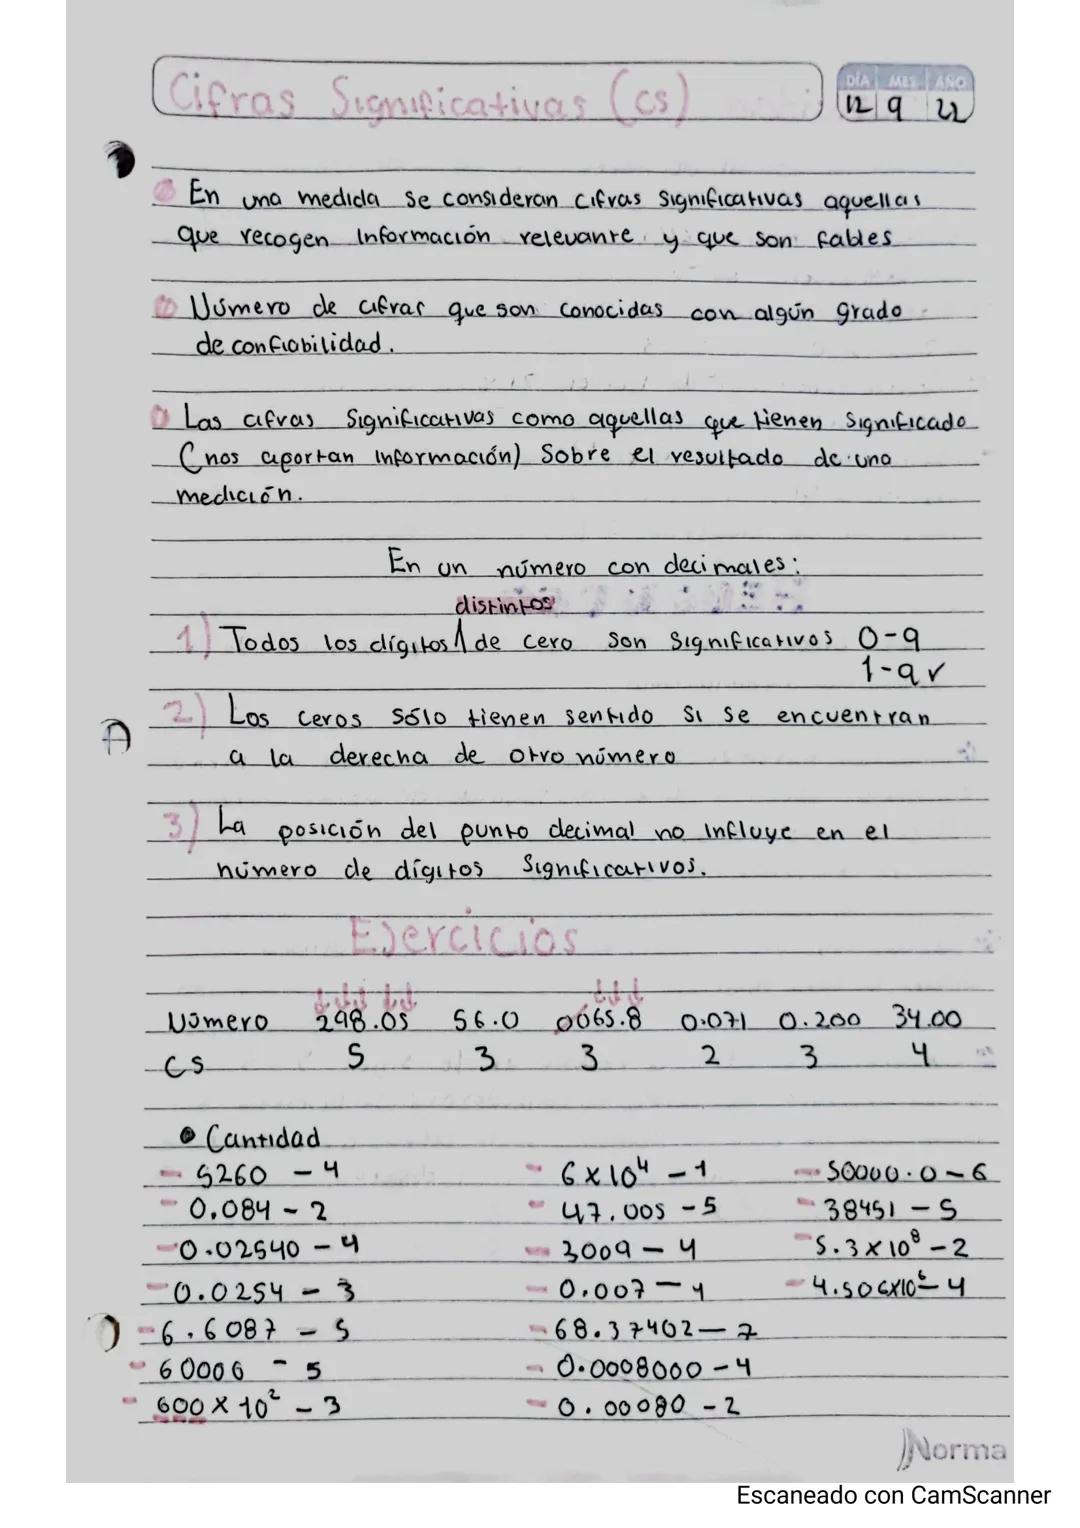 Cifras Significativas (cs)
DÍA MES AÑO
12 9 22
En una medida se consideran cifras significativas aquellas
que recogen información relevante y que son fables
Número de cifras que son conocidas con algún grado
de confiabilidad.
Las cifras significativas como aquellas que tienen significado
(nos aportan información) sobre el resultado de una
medición.
En un número con decimales:
distintos
1) Todos los dígitos de cero son significativos 0-9
1-9 ✓
2) Los ceros sólo tienen sentido si se encuentran
a la derecha de otro número
3) La posición del punto decimal no influye en el
número de dígitos significativos.
Ejercicios
Número 298.05 56.0 0065.8 0.071 0.200 34.00
CS 5 3 3 2 3 4
• Cantidad
- 5260 - 4 - 6 x 10⁴ - 1 - 50000.0 - 6
- 0.084 - 2 - 47.005 - 5 - 38451 - 5
- 0.02540 - 4 - 3009 - 4 - 5.3 x 10⁸ - 2
- 0.0254 - 3 - 0.007 - 1 - 4.506x10⁶ - 4
- 6.6087 - 5 - 68.37402 - 7
- 60006 - 5 - 0.0008000 - 4
- 600 x 10² - 3 - 0.00080 - 2
Norma
Escaneado con CamScanner